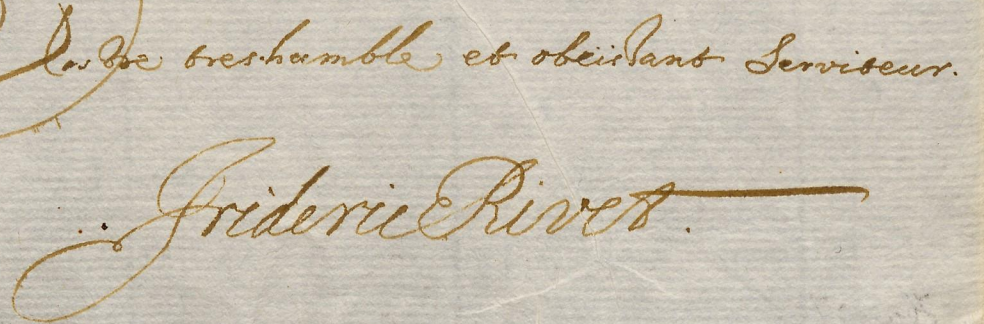 Vostre tres.humble et obeissant Serviteur.
Frideric Rivet.